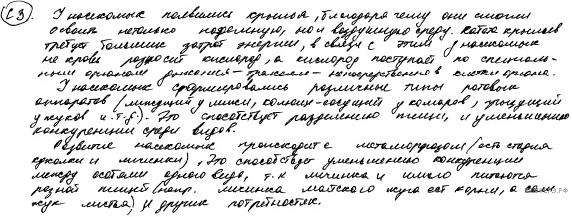 С3. У насекомых появились крылья, благодаря чему они смогли
освоить не только наземную, но и воздушную среду. Работа крыльев
требует больших затрат энергии, в связи с этим у насекомых
не кровь разносит кислород, а кислород поступает по специаль-
ным органам дыхания - трахеям - непосредственно в клетки органа.
У насекомых сформировались различные типы ротовых
аппаратов (лижущий у мухи, колюще-сосущий у комаров, грызущий
у жуков и.т.д.). Это способствует разделению пищи, и уменьшению
конкуренции среди видов.
Развитие насекомых происходит с метаморфозом (есть стадия
куколки и личинки). Это способствует уменьшению конкуренции
между особями одного вида, т.к личинка и имаго питаются
разной пищей (напр. личинка майского жука ест корни, а сам
жук листья) и других потребностях.